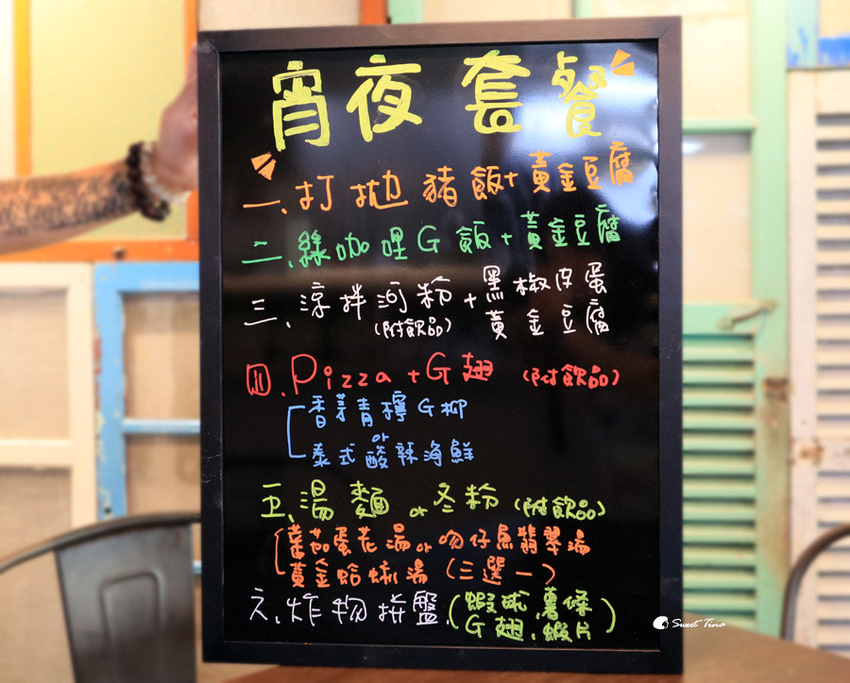 宵夜 套餐
一、打拋豬飯+黃金豆腐
二、綠咖哩G飯+黃金豆腐
三、涼拌河粉+黑椒皮蛋
(附飲品) 黃金豆腐
四、Pizza+G翅 (附飲品)
香茅青檸G柳
or
泰式酸辣海鮮
五、湯麵 or 冬粉 (附飲品)
蕃茄蛋花湯 or 吻仔魚翡翠湯
黃金蛤蜊湯 (三選一)
六、炸物拼盤 (蝦球、薯條
G翅、蝦片)
Sweet Tina